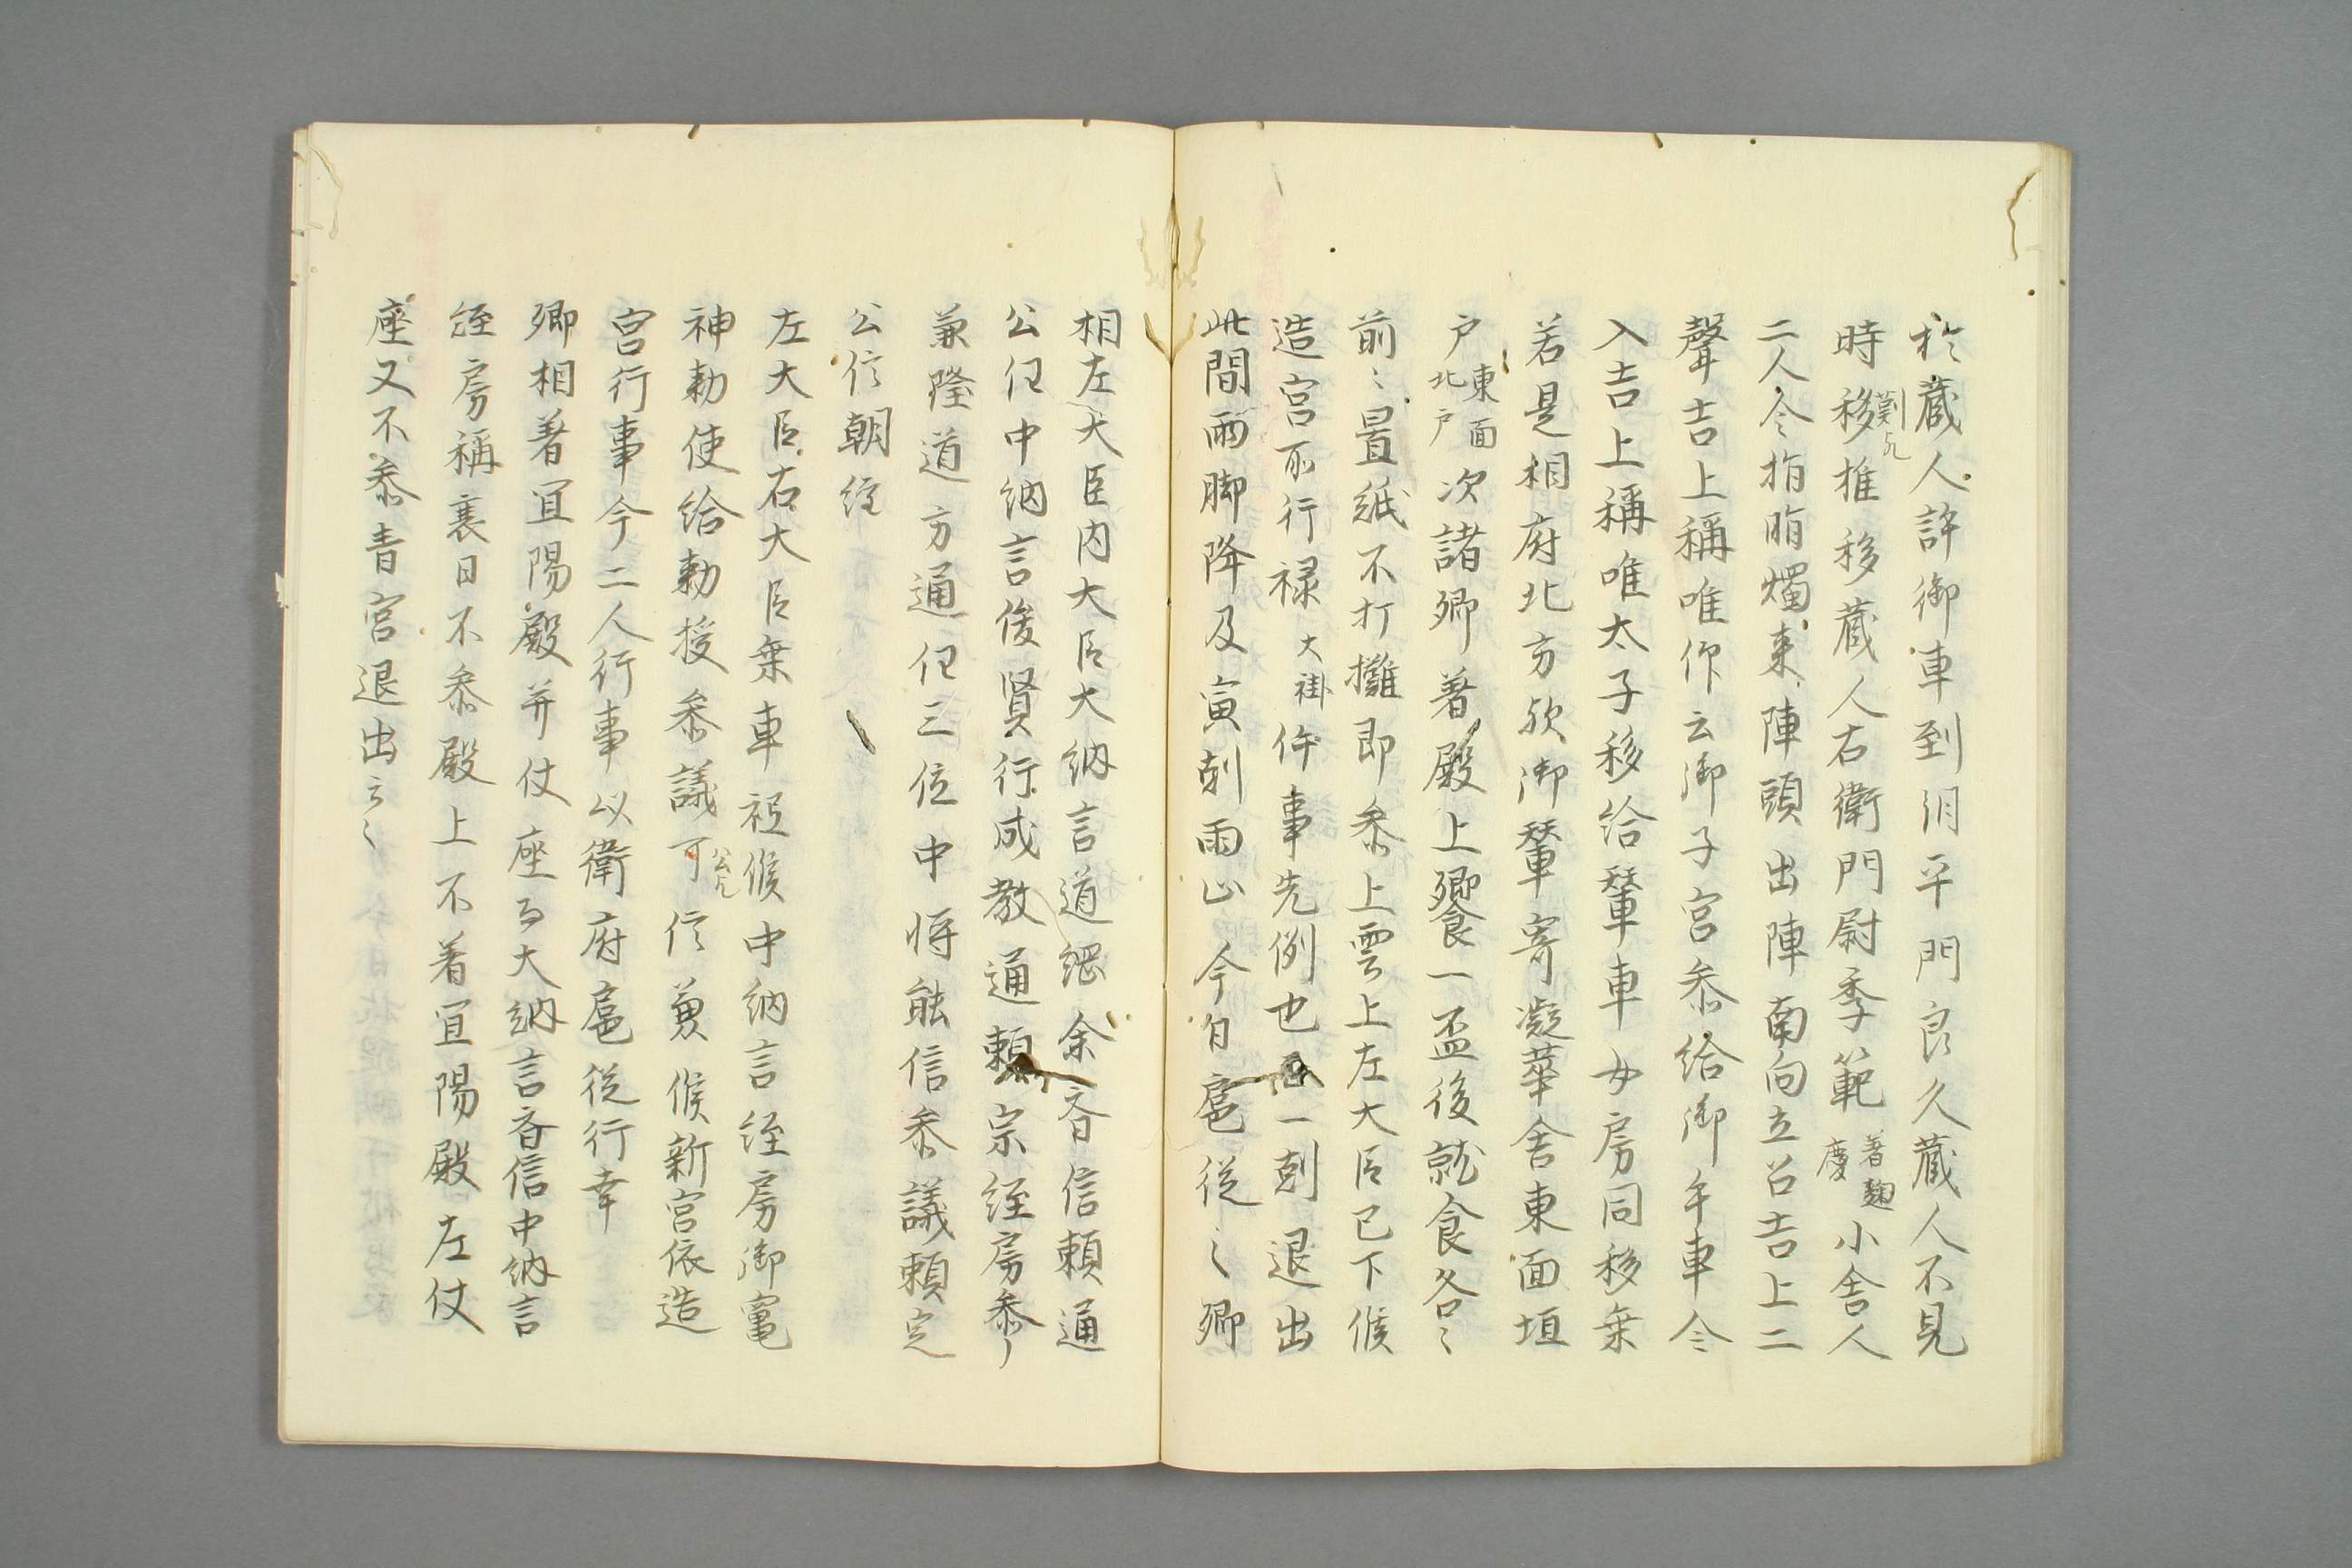 於蔵人許御車到淍平門良久蔵人不見
時移剋九推移蔵人右衛門尉季範著麹塵小舎人
二人令指脂燭来陣頭出陣南向立召吉上二
聲吉上稱唯仰云御子宮参給御牛車令
入吉上稱唯太子移給輦車女房同移乗
若是相府北方欤御輦車寄凝華舎東面垣
戸東面北戸次諸卿著殿上饗一盃後就食各〻
前〻置紙不打攤即参上雲上左大臣已下候
造宮所行禄大褂件事先例也一剋退出
此間雨脚降及寅剋雨止今日扈従之卿
相左大臣内大臣大納言道綱余斉信頼通
公任中納言俊賢行成教通頼宗経房参
兼隆道方通任三位中将能信参議頼定
公信朝経
左大臣右大臣乗車祗候中納言経房御竃
神勅使給勅授参議可公九信剪候新宮依造
宮行事今二人行事以衛府扈従行幸
卿相著宜陽殿并仗座而大納言斉信中納言
経房稱襄日不参殿上不着宜陽殿左仗
座又不参青宮退出云〻